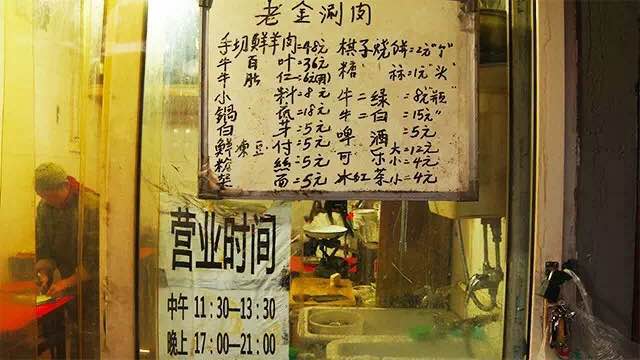 老金涮肉
手切鮮羊肉=48元
牛百叶=36元
牛肚仁
小料=8元
鍋底=18元
白芽=5元
鮮凍豆付=5元
丝=5元
面=5元
棋子烧饼=2元"个"
糖蒜=1元"头"
牛二绿=8元"瓶"
牛二白=15元"
啤酒=5元
可乐大=12元
小=4元
冰红茶小=4元
营业时间
中午 11:30—13:30
晚上 17:00—21:00